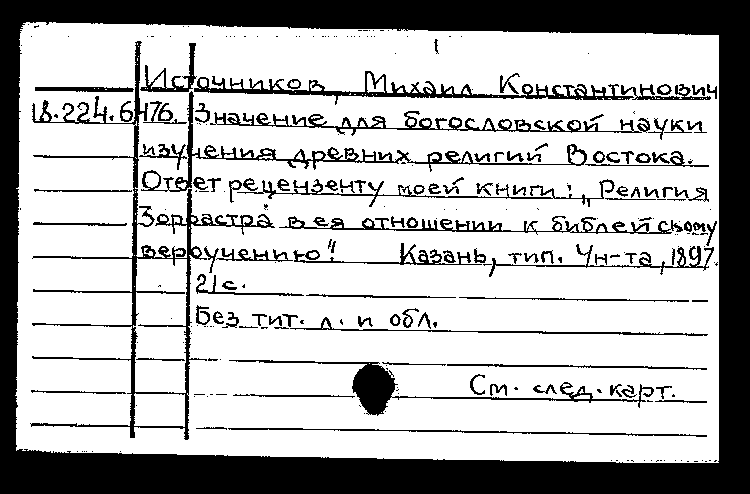 Источников, Михаил Константинович
18.224.6.476. Значение для богословской науки
изучения древних религий Востока.
Ответ рецензенту моей книги: „Религия
Зороастра в ея отношении к библейскому
вероучению". Казань, тип. Ун-та, 1897.
21 с.
Без тит. л. и обл.
См. след. карт.